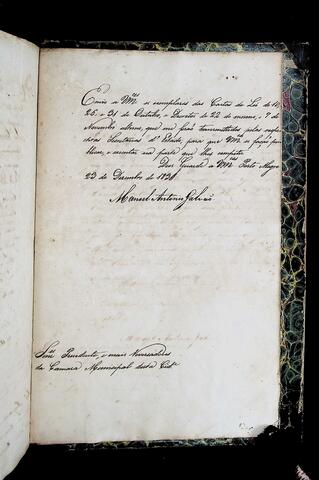 Envio a Vm.ces os exemplares das Cartas de Lei de
25, e 31 de Outubro, e Decretos de 22 do mesmo, e 7 de
Novembro ultimo, que me forão transmittidos pelas respec
tivas Secretarias d'Estado, para que Vm.ces os fação pu
blicar, e executar na parte que lhes competir.
Deos Guarde a Vm.ces Porto Alegre
23 de Dezembro de 1831
Manoel Antonio Galvão
Snr.es Presidente, e mais Vereadores
da Camara Municipal desta Cid.e